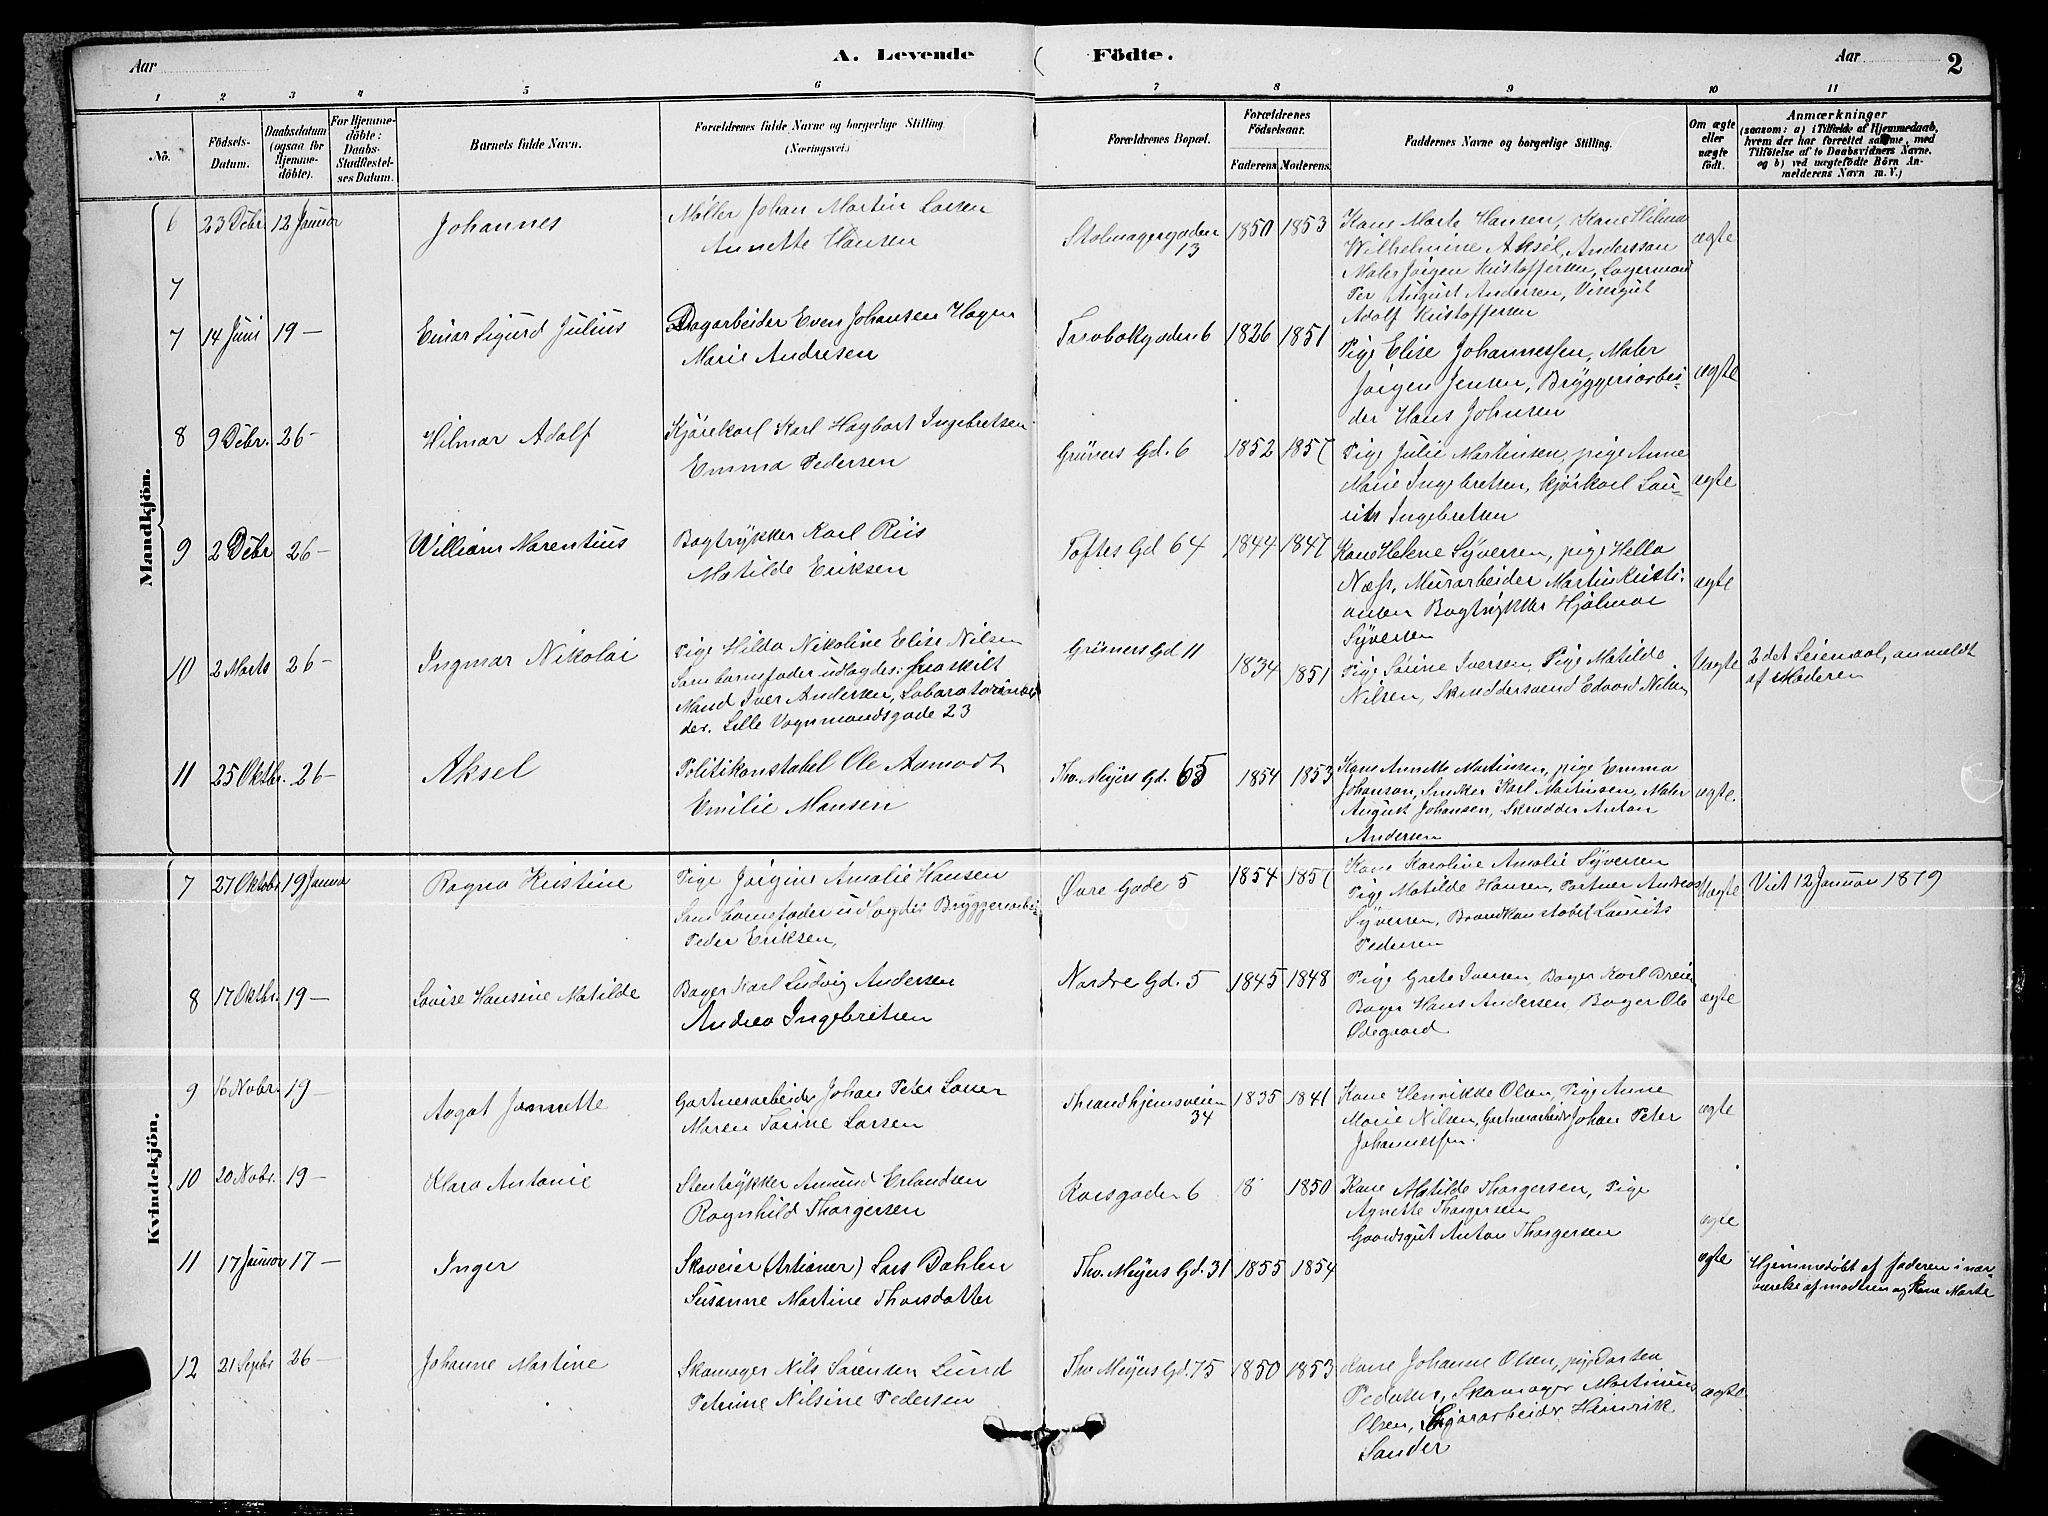 Aar
A. Levende
Födte.
Aar
2
1 2 3 4 5 6 7 8 9 10 11
No.
Födsels-Datum.
Daabsdatum (ogsaa for Hjemme-döbte).
For Hjemme-döbte: Daabs-Stadfestel-ses Datum.
Barnets fulde Navn.
Forældrenes fulde Navne og borgerlige Stilling (Næringsvei).
Forældrenes Bopæl.
Forældrenes Födselsaar.
Faderens
Moderens.
Faddernes Navne og borgerlige Stilling.
Om ægte eller uægte födt.
Anmærkninger
(saasom: a) i Tilfælde af Hjemmedaab,
hvem der har forrettet samme, med
Tilföielse af to Daabsvidners Navne,
og b) ved uægtefödte Börn An-
melderens Navn m. V.)
Mandkjön.
6 23 Debr. 12 Januar Johannes
Møller Johan Martin Larsen
Annette Hansen
Stolmagergaden 13
1850 1853
Kone Marte Hansen, Kone Hilma
Wilhelmine Aksel, Anderssan
Maler Jörgen Kristoffersen, Lagermand
Per August Andersen, Visergut
Adolf Kristoffersen
ægte
7
7 14 Juni 19 — Einar Sigurd Julius
Dagarbeider Even Johansen Hagen
Marie Andresen
1826 1851
Pige Elise Johannessen, Maler
Jörgen Jensen, Bryggeriarbei-
der Hans Johnsen
ægte
8 9 Debr. 26 — Hilmar Adolf
Kjörekarl Karl Hagbart Ingebretsen
Emma Pedersen
Grüners Gd. 6
1852 1857
Pige Julie Martinsen, pige Anne
Marie Ingebretsen, kjörkarl Lau-
rits Ingebretsen
ægte
9 2 Debr 26 — William Marentius
Bogtrykker Karl Riis
Matilde Eriksen
Toftes Gd 64
1844 1847
Kone Helene Syversen, pige Hella
Næss, Murarbeider Martin Kristi-
ansen Bogtrykker Hjalmar
Syversen
ægte
10 2 Marts 26 — Ingmar Nikolai
Pige Hilda Nikoline Elise Nilsen
Som barnefader udlagdes: fraskilt
Mand Iver Andersen, Laboratoriearbei
der. Lille Vognmandsgade 23
Grüners Gd 11
1834 1851
Pige Laura Iversen, Pige Matilde
Nilsen, Skreddersvend Edvard Nilsen
Uægte
2det Leiermaal, anmeldt
af Moderen
11 25 Oktbr. 26 — Aksel
Politikonstabel Ole Aamodt
Emilie Hansen
Thv. Meyers Gd. 65
1854 1853
Kone Annette Martinsen, pige Emma
Johanson, Snekker Karl Martinsen, Maler
August Johansen, Skrædder Anton
Andersen
ægte.
Kvindekjön.
7 27 Oktobr 19 Januar Ragna Kristine
Pige Jörgine Amalie Hansen
Som barnefader udlagdes Bryggeriarbei-
Peder Eriksen,
Övre Gade 5
1854 1857
Kone Karoline Amalie Syversen
Pige Matilde Hansen, Portner Andreas
Syversen, Brandkonstabel Laurits
Pedersen
Uægte
Viet 12 Januar 1879
8 17 Oktbr. 19 — Lovise Hansine Matilde
Bager Karl Ludvig Andersen
Andrea Ingebretsen
Nordre Gd. 5
1845 1848
Pige Grete Jonsen, Bager Karl Breien
Bager Hans Andersen, Bager Ole
Ödegaard
ægte
9 16 Nobr. 19 — Aagot Jannette
Gartnerarbeider Johan Peter Larsen
Maren Torine Larsen
Throndhjemsveien 34
1835 1841
Kone Henrikke Olsen, Pige Anne
Marie Nilsen, Gartnerarbeider Johan Peter
Johannessen.
ægte
10 20 Nobr. 19 — Klara Antonie
Stentrykker Amund Erlandsen
Ragnhild Thorgersen
Korsgaden 6
18 1850
Kone Matilde Thorgersen, Pige
Agnette Thorgersen
Gaardsgut Anton Thorgersen
ægte
11 17 Januar 17 — Inger
Skoveier (Artianer) Lars Dahlen
Susanne Martine Thorsdatter
Thv. Meyers Gd. 31
1855 1854
ægte
Hjemmedöbt af faderen i nær-
værelse af modren og Kone Marte
12 21 Septbr 26 — Johanne Martine
Skomager Nils Sörensen Lund
Petrine Nilsine Pedersen
Thv Meyers Gd. 75
1850 1853
Kone Johanne Olsen, pige Dortea
Pedersen, Skomager Martinius
Olsen, Henrik
Sander
ægte.